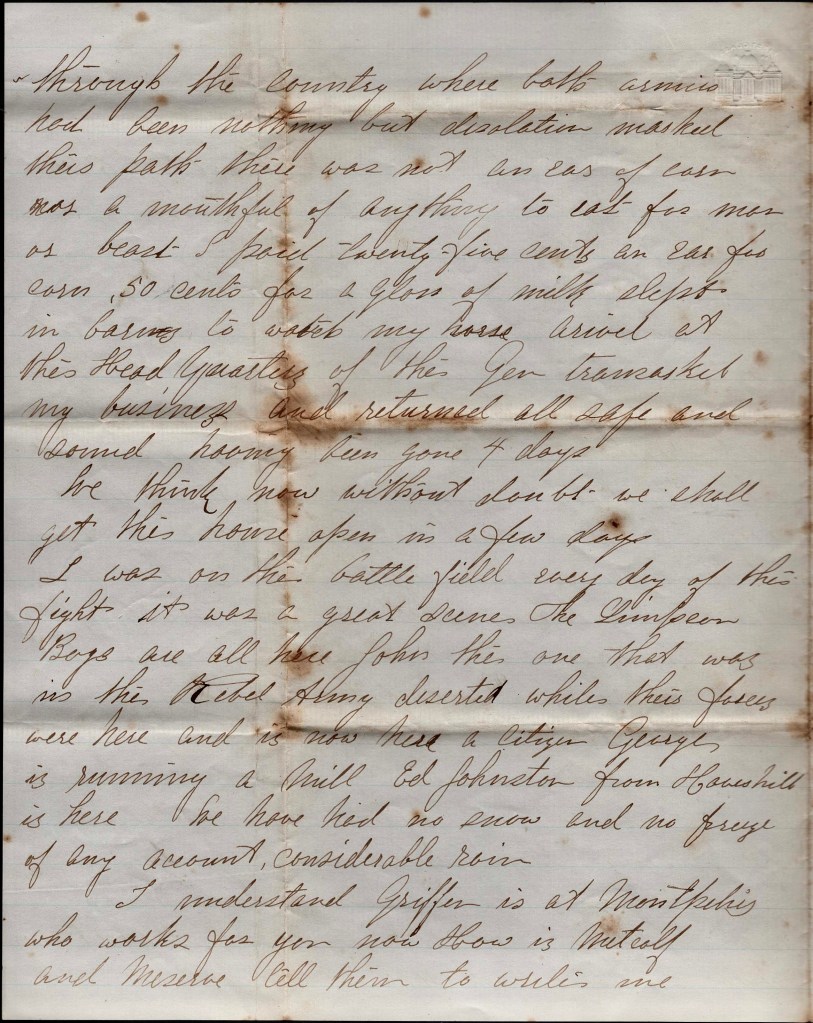 through the country where both armies
had been nothing but disolation marked
their path there was not an ear of corn
nor a mouthful of anything to eat for man
or beast I paid twenty-five cents an ear for
corn, 50 cents for a glass of milk slept
in barns to watch my horse arived at
the Head Quarters of the Gen transacted
my business and returned all safe and
sound having been gone 4 days
We think now without doubt we shall
get the house open in a few days
I was on the battle field every day of the
fight it was a great scene The Simpson
Boys are all here John the one that was
in the Rebel Army deserted while their forces
were here and is now here a citizen George
is running a Mill Ed Johnston from Haverhill
is here We have had no snow and no freeze
of any account, considerable rain
I understand Griffin is at Montpelier
who works for you now How is Metcalf
and Meserve tell them to write me